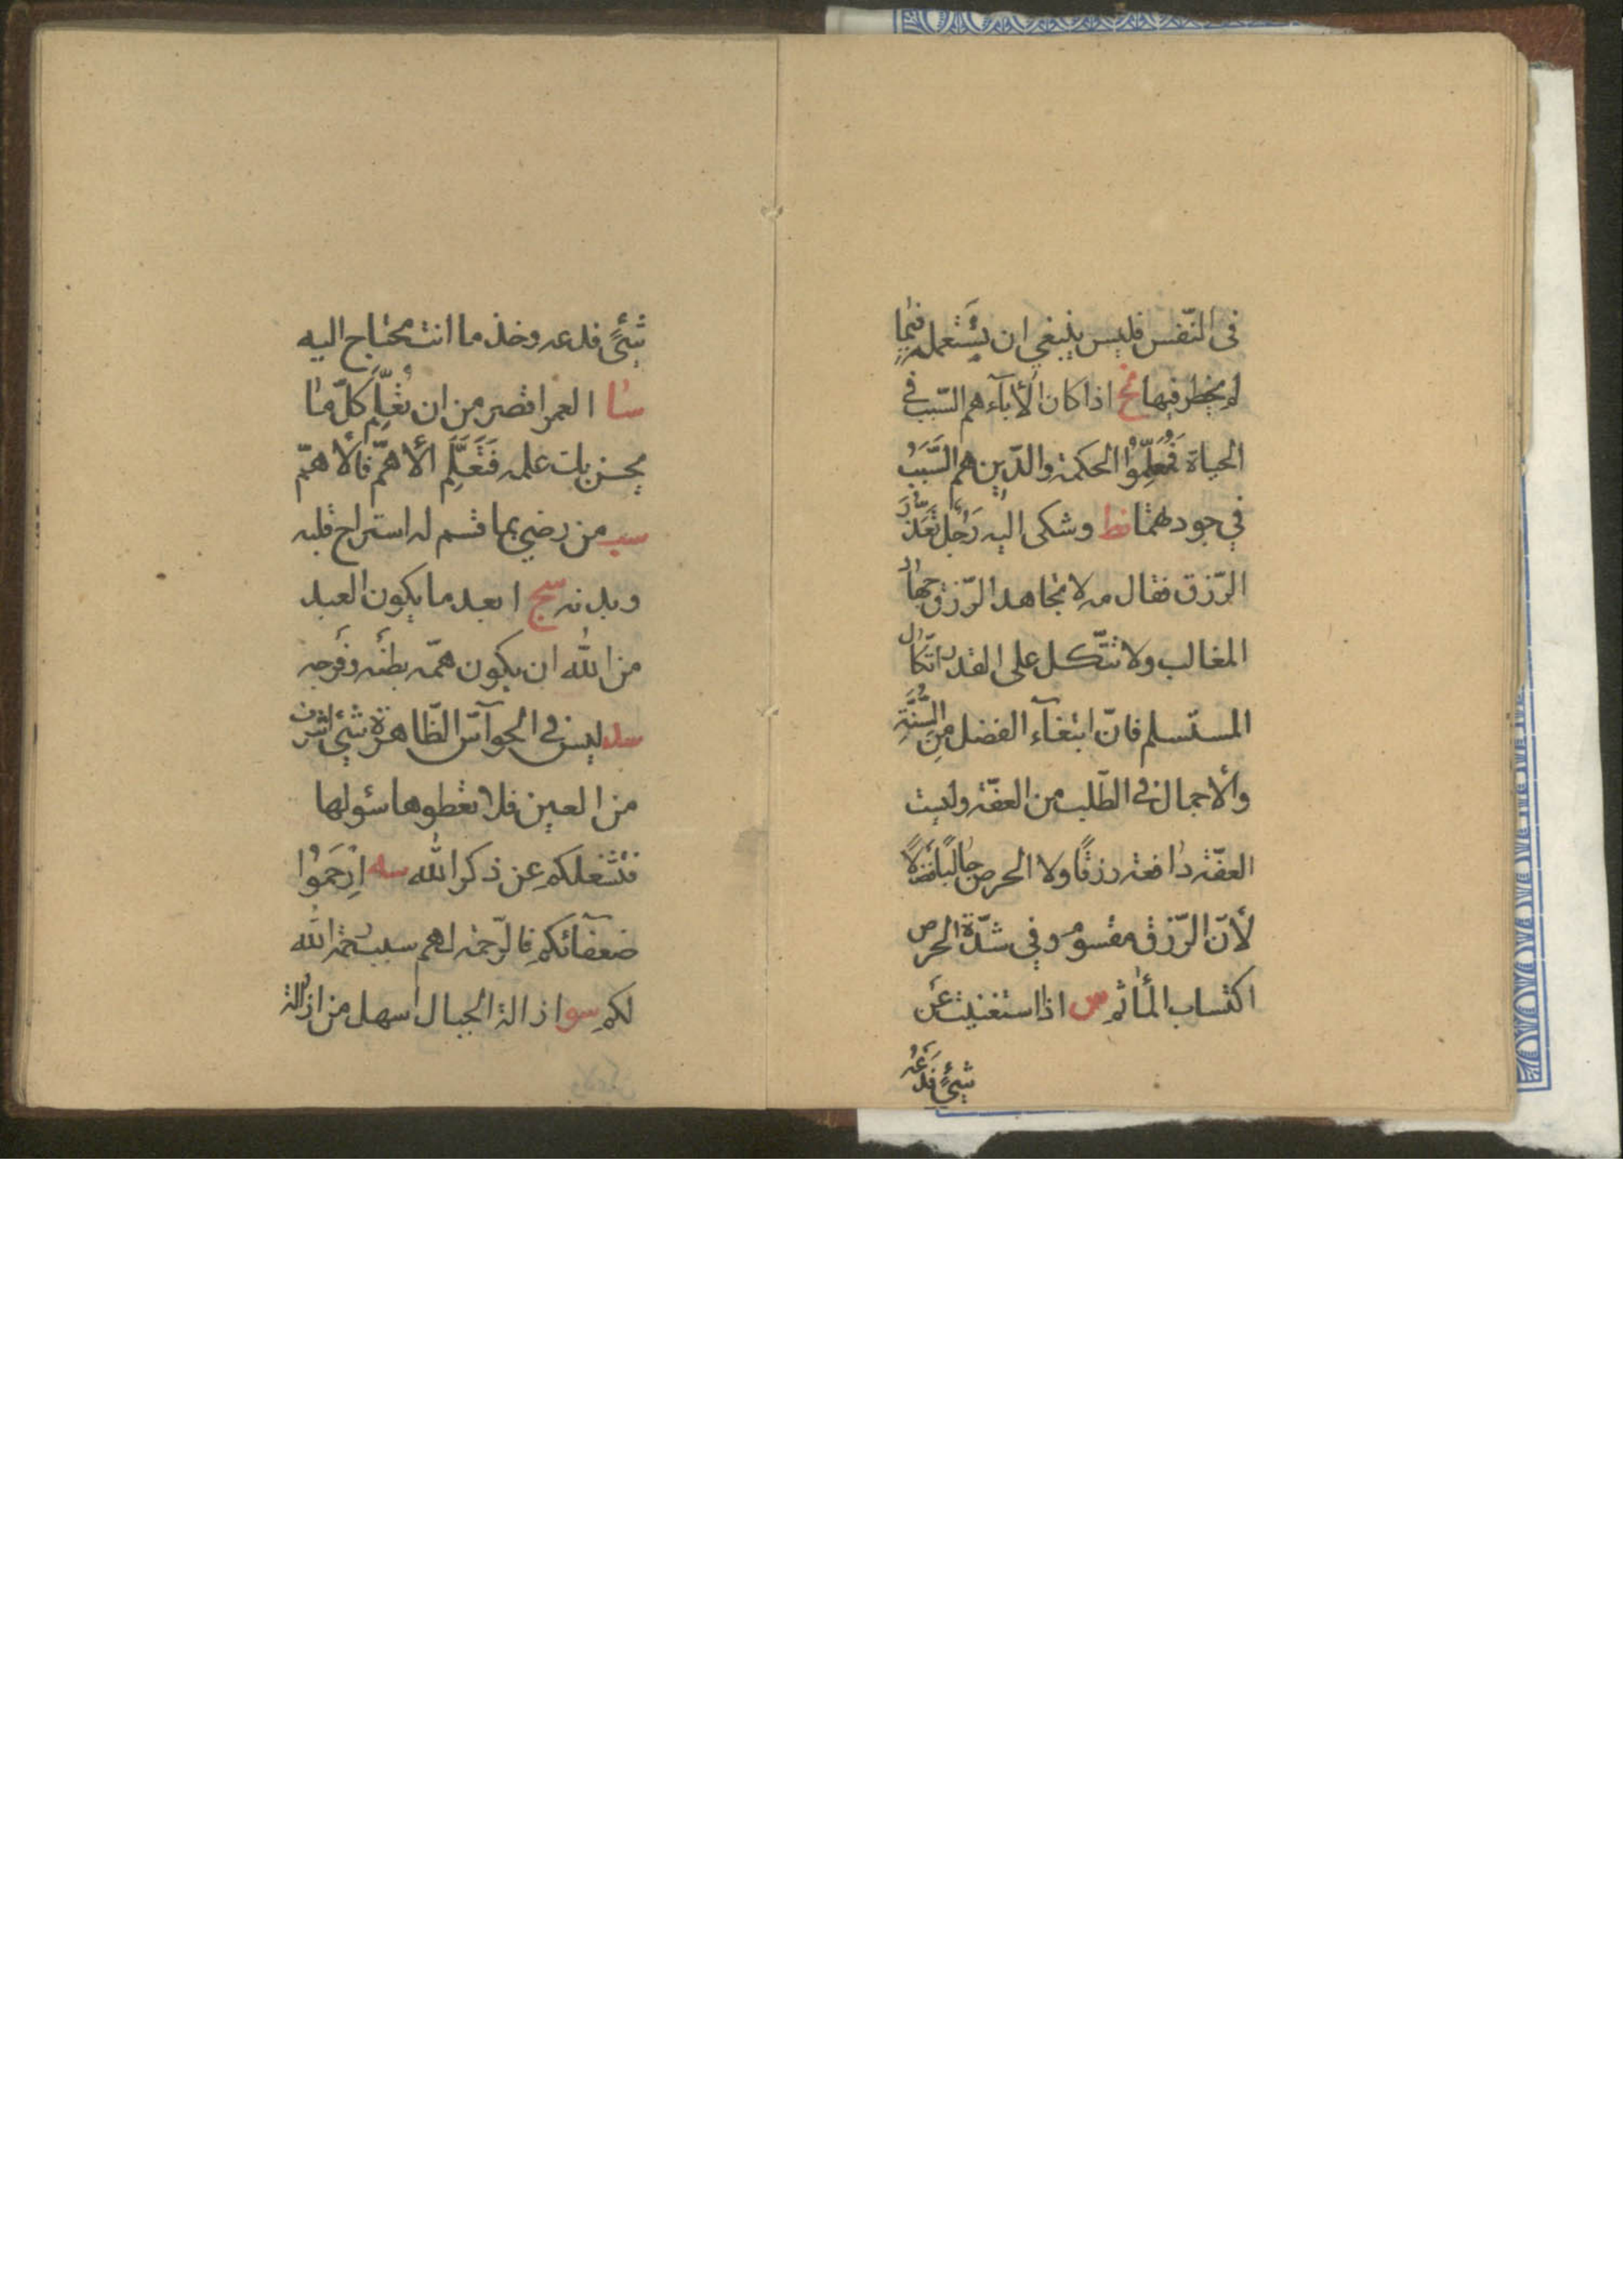 في النّفس فليس ينبغي ان يستعمله فيما
لم يخطر فيها نح اذا كان الأبآء هم السّبب في
الحياة فمعلّموا الحكمة والدّين هم السَّبَبُ
في جودهما نط وشكى اليه رَجُل تعذّرَ
الرّزق فقال مه لا تجاهد الرّزق جهاد
المغالب ولا تتّكل على القدر اتّكال
المستسلم فانّ ابتغآء الفضل من السُّنَّةِ
والأجمال في الطّلب من العفّة وليست
العفّة دافعة رزقًا ولا الحرص جالبًا فضلًا
لأنّ الرّزق مقسوم وفي شدّة الحرص
اكتساب المأثم س اذا استغنيت عَن
شئٍ فدَعْهُ
شئٍ فدعه وخذ ما انت محتاج اليه
سا العمر اقصر من ان تعْلَم كلّ ما
يحسن بك علمه فَتَعَلَّم الأهمّ فالأهمّ
سب من رضي بما قسم له استراح قلبه
وبدنه سج ابعد ما يكون العبد
من الله ان يكون همّه بطنَه وفَرجه
سد ليس في الحوآسّ الظّاهرة شئ اشرف
من العين فلا تعطوها سئولها
فتشغلكم عن ذكر الله سه اِرحَمُوا
ضعفآئكم فالرّحمة لهم سبب رحمة الله
لكم سو ازالة الجبال اسهل من ازالة